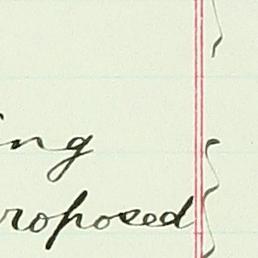 ing
roposed